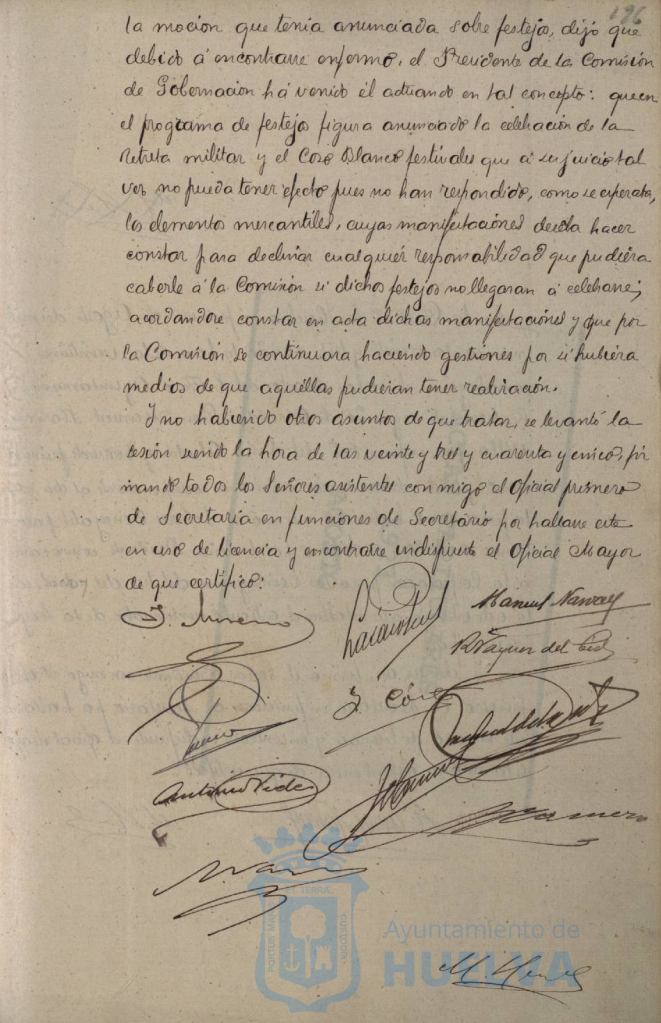 196
la moción que tenia anunciada sobre festejos, dijo que
debido á encontrarse enfermo, el Presidente de la Comisión
de Gobernacion há venido él actuando en tal concepto: que en
el programa de festejos figura anunciado la celebración de la
retreta militar y el Coso Blanco festivales que á su juicio tal
vez no pueda tener efecto pues no han respondido, como se esperaba,
los elementos mercantiles, cuyas manifestaciones desea hacer
constar para declinar cualquiér responsabilidad que pudiera
caberle á la Comisión si dichos festejos no llegaran á celebrarse;
acordandose constar en acta dichas manifestaciones y que por
la Comisión se continuara haciendo gestiones por si hubiera
medios de que aquéllas pudieran tener realización.
Y no habiendo otros asuntos de que tratar, se levantó la
sesión siendo la hora de las veinte y tres y cuarenta y cinco, fir
mando todos los Señores asistentes conmigo el Oficial primero
de Secretaria en funciones de Secretário por hallarse este
en uso de licencia y encontrarse indispuesto el Oficial Mayor
de que certifico:
J. Moreno
Manuel Navarro
R. Vazquez del
J. Córe
Antonio Videz
PORTUS MARIS ET TERRAE CUSTODIA
Ayuntamiento de
HUELVA